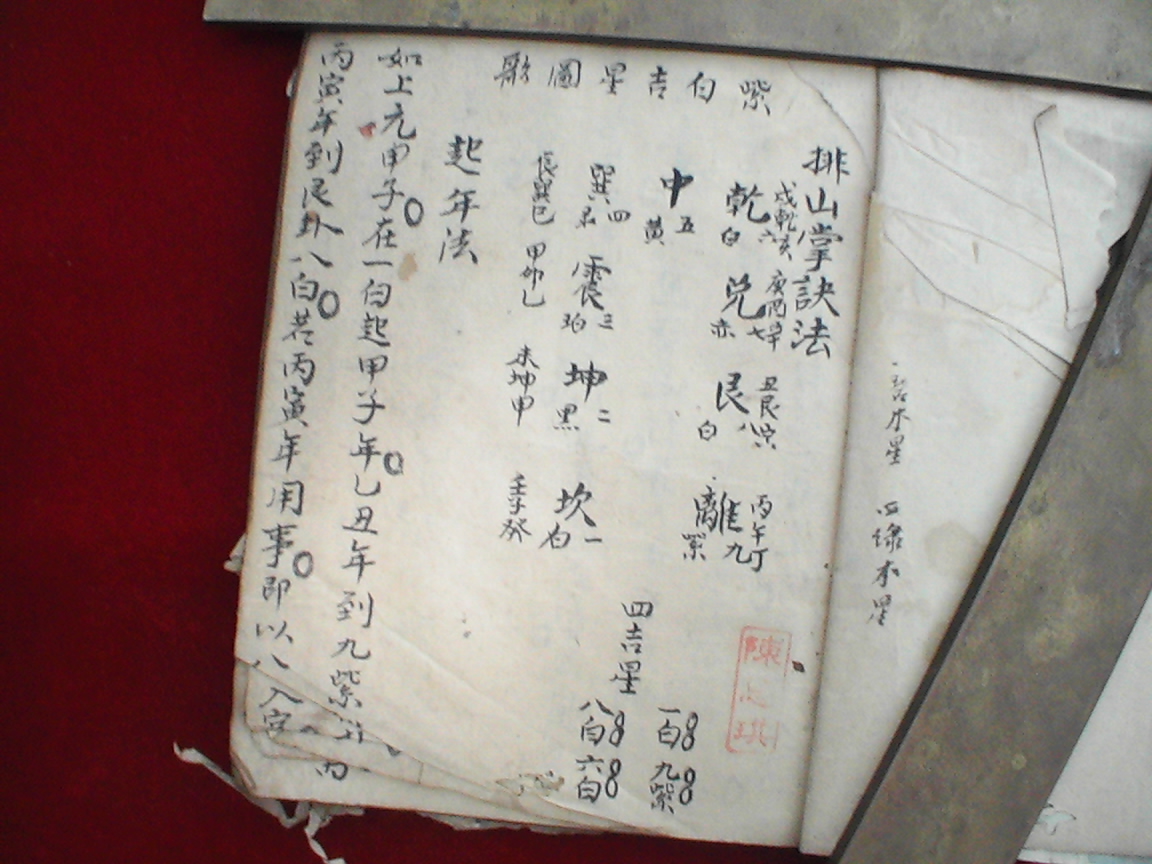 紫白吉星圖
排山掌訣法
戌乾亥 庚酉辛 丑艮寅 丙午丁
乾六白 兌七赤 艮八白 離九紫
中五黃
巽四 震三 坤二黑 坎一白
巽巳 甲卯乙 未坤申 壬子癸
四吉星
一白 九紫
八白 六白
陳
起年法
如上元甲子在一白起甲子年乙丑年到九紫
丙
丙寅年到艮卦八白若丙寅年用事即以八入宮
木星 四綠木星